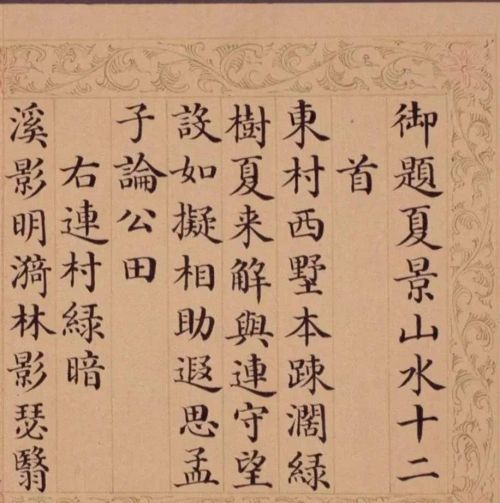 御題夏景山水十二
首
東村西墅本踈濶綠
樹夏来解與連守望
設如擬相助遐思孟
子論公田
右連村綠暗
溪影明漪林影瑟翳